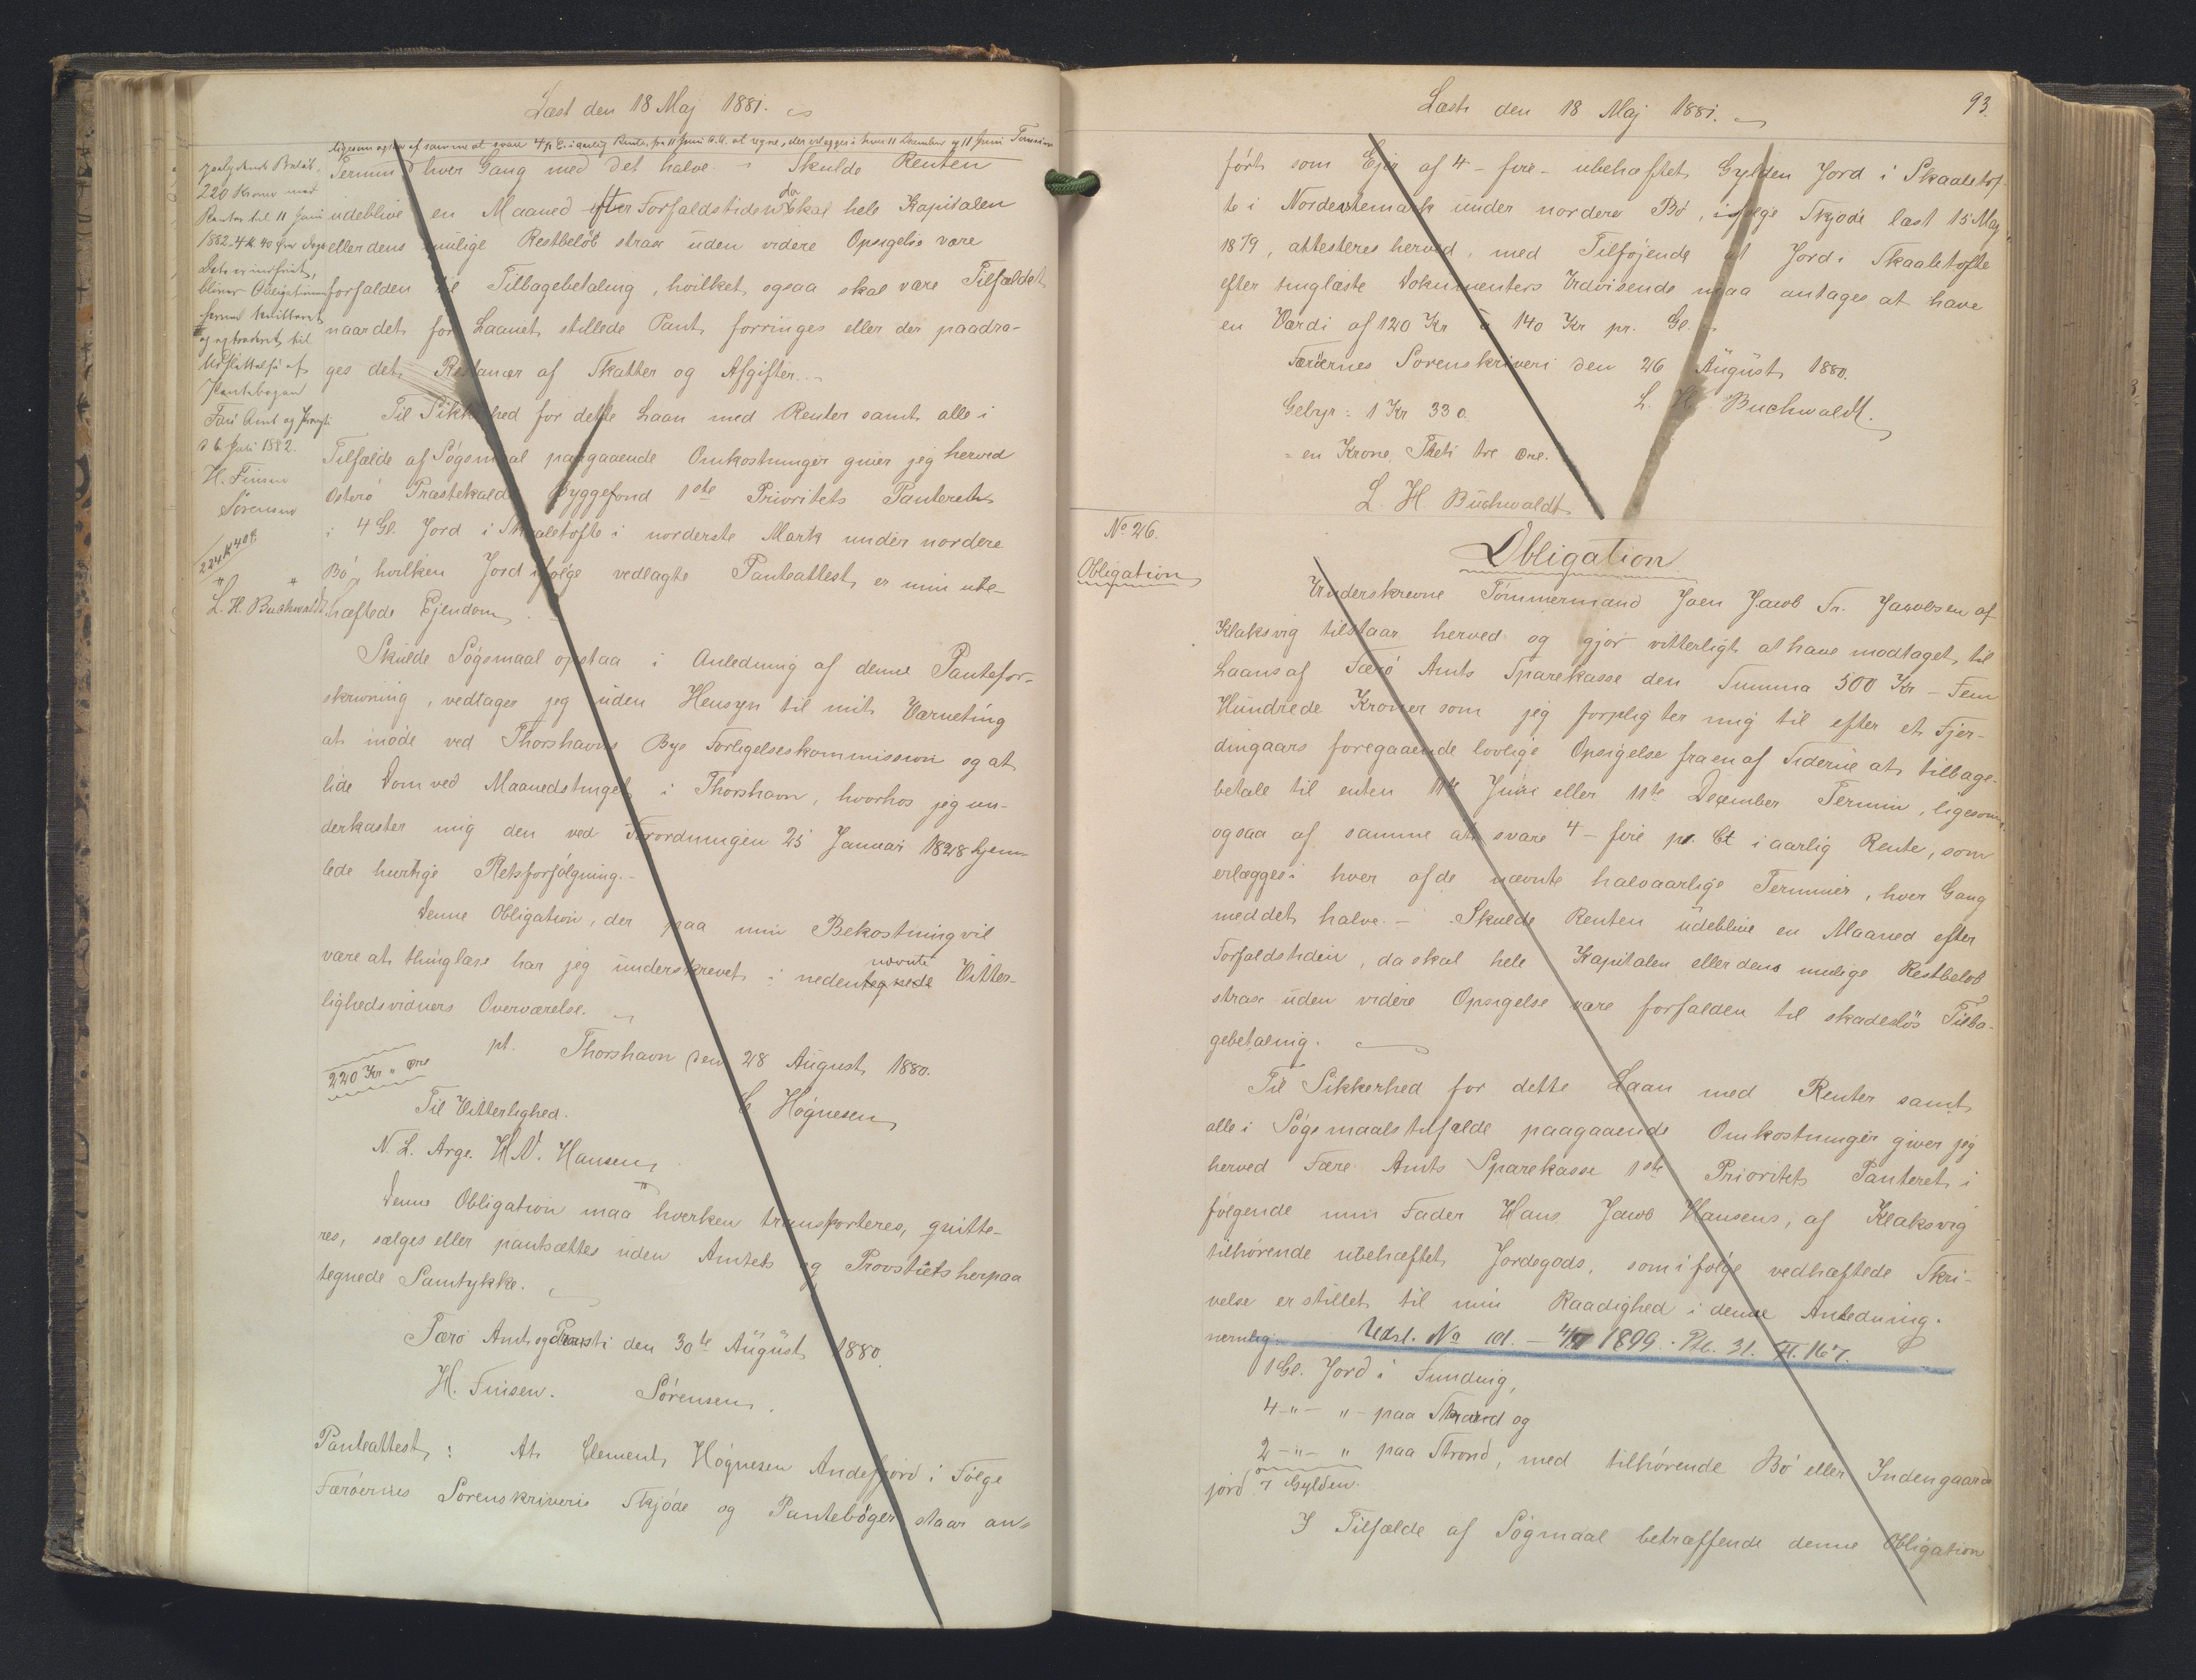 Læst den 18 Maj 1881.
ligesom ogsaa af samme at svare 4 p. C. i aarlig Rente, fra 11 Juni d. A. at regne, der erlægges i hver 11 December og 11 Juni Termin
Termin hver Gang med det halve. - Skulde Renten
udeblive en Maaned efter Forfaldstiden da skal hele Kapitalen
eller dens mulige Restbeløb strax uden videre Opsigelse være
forfalden til Tilbagebetaling, hvilket ogsaa skal være Tilfældet
naar det for Laanet stillede Pant forringes eller der paadra-
ges det Restancer af Skatter og Afgifter. -
Til Sikkerhed for dette Laan med Renter samt alle i
Tilfælde af Søgsmaal paagaaende Omkostninger giver jeg herved
Østerø Præstekalds Byggefond 1ste Prioritets Panteret
i 4 Gl. Jord i Skaaletofte i norderste Mark under nordere
Bø, hvilken Jord ifølge vedlagte Panteattest er min ube-
hæftede Ejendom.
Skulde Søgsmaal opstaa i Anledning af denne Pantefor-
skrivning, vedtager jeg uden Hensyn til mit Værneting
at møde ved Thorshavns Bys Forligelseskommission og at
lide Dom ved Maanedstinget i Thorshavn, hvorhos jeg un-
derkaster mig den ved Forordningen 25 Januar 1828 hjem-
lede hurtige Retsforfølgning. -
Denne Obligation, der paa min Bekostning vil
være at thinglæse har jeg underskrevet i nedentegnede nævnte Vitter-
lighedsvidners Overværelse.
pt. Thorshavn den 28 August 1880.
220 Kr " Øre
C Høgnesen
Til Vitterlighed.
N. L. Arge. H. N. Hansen
Denne Obligation maa hverken transporteres, qvitte-
res, sælges eller pantsættes uden Amtets og Provstiets herpaa
tegnede Samtykke.
Færø Amt og Provsti den 30te August 1880.
H. Finsen. Sørensen.
Panteattest: At Clement Høgnesen Andefjord i Følge
Færøernes Sorenskriveris Skjøde og Pantebøger staar an-
paalydende Beløb,
220 Kroner med
Renter til 11 Juni
1882 - 4 K 40 Øre
Dets er indfriet,
bliver Obligationen
herved kvitteret
og extraderet til
Udslettelse af
Pantebogen
Færø Amt og Provsti
d 6 Juli 1882.
H. Finsen
Sørensen
224 K 40 Ø.
L. H. Buchwaldt
Læst den 18 Maj 1881.
93.
ført som Ejer af 4 - fire - ubehæftet Gylden Jord i Skaaletof-
te i Nordestemark under nordere Bø, ifølge Skjøde læst 15 Maj
1879, attesteres herved, med Tilføjende at Jord i Skaaletofte
efter tinglæste Dokumenters Udvisende maa antages at have
en Værdi af 120 Kr à 140 Kr pr. Gl.
Færøernes Sorenskriveri den 26 August 1880.
L. H. Buchwaldt.
Gebyr = 1 Kr 33 o.
= en Krone, Treti tre Øre.
L. H Buchwaldt
No 26.
Obligation
Obligation
Underskrevne Tømmermand Joen Jacob Fr. Jacobsen af
Klaksvig tilstaar herved og gjør vitterligt at have modtaget til
Laans af Færø Amts Sparekasse den Summa 500 Kr - Fem
Hundrede Kroner som jeg forpligter mig til efter et Fjer-
dingaars foregaaende lovlige Opsigelse fra en af Siderne at tilbage-
betale til enten 11te Juni eller 11te December Termin, ligesom
ogsaa af samme at svare 4 - fire pr. Ct i aarlig Rente, som
erlægges i hver af de nævnte halvaarlige Terminer, hver Gang
med det halve. - Skulde Renten udeblive en Maaned efter
Forfaldstiden, da skal hele Kapitalen eller dens mulige Restbeløb
strax uden videre Opsigelse være forfalden til skadesløs Tilba-
gebetaling.
Til Sikkerhed for dette Laan med Renter samt
alle i Søgsmaalstilfælde paagaaende Omkostninger giver jeg
herved Færø Amts Sparekasse 1ste Prioritets Panteret i
følgende min Fader Hans Jacob Hansens, af Klaksvig
tilhørende ubehæftet Jordegods, som ifølge vedhæftede Skri-
velse er stillet til min Raadighed i denne Anledning.
nemlig: Udsl. No 101. - 1899. Ptb. 31. Fl. 167.
1 Gl. Jord i Funding,
4 - " - " - paa Strand og
2 - " - " paa Strond, med tilhørende Bø eller Indengaards
jord 7 Gylden.
I Tilfælde af Søgmaal betræffende denne Obligation